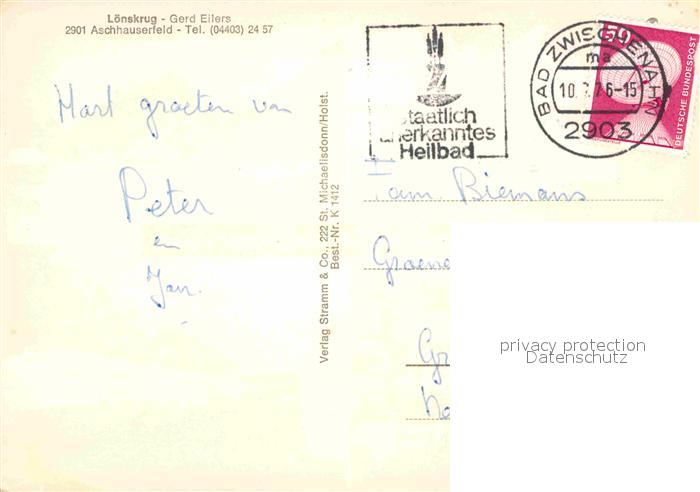 Lönskrug - Gerd Eilers
2901 Aschhauserfeld - Tel. (04403) 24 57
Hart groeten van
Peter
en
Jan.
Verlag Stramm & Co., 222 St. Michaelisdonn/Holst.
Best.-Nr. K 1412
Staatlich
anerkanntes
Heilbad
BAD ZWISCHENAHN
ma
2903
50
DEUTSCHE BUNDESPOST
Fam Biemans
privacy protection
Datenschutz